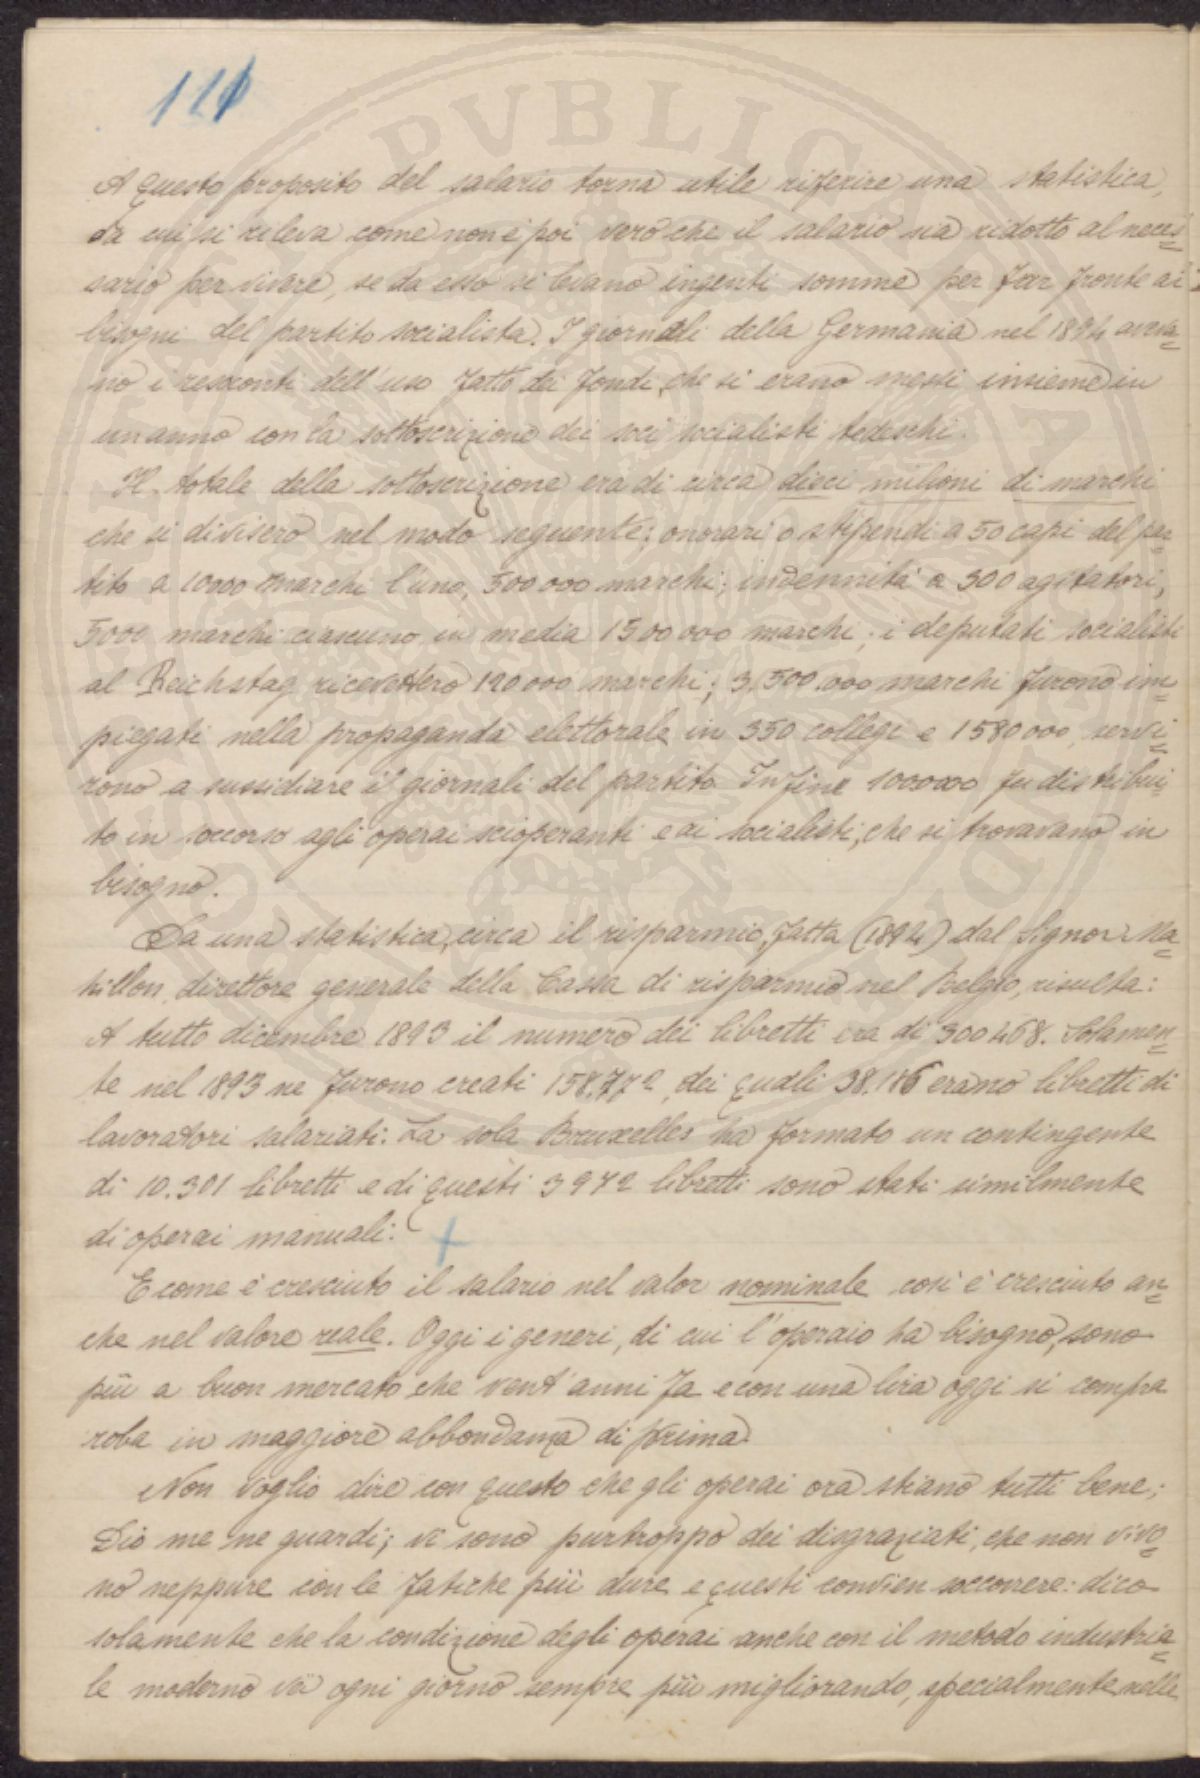 111
A questo proposito del salario torna utile riferire una statistica,
da cui si rileva come non è poi vero che il salario sia ridotto al neces=
sario per vivere, se da esso si levano ingenti somme per far fronte ai
bisogni del partito socialista. I giornali della Germania nel 1894 aveva=
no i resoconti dell'uso fatto dei fondi, che si erano messi insieme in
un anno con la sottoscrizione dei soci socialisti tedeschi.
Il totale della sottoscrizione era di circa dieci milioni di marchi
che si divisero nel modo seguente; onorari o stipendi a 50 capi del par=
tito a 10000 marchi l'uno, 500 000 marchi; indennità a 300 agitatori,
5000 marchi ciascuno in media 1500 000 marchi; i deputati socialisti
al Reichstag ricevettero 120 000 marchi; 3,500.000 marchi furono im=
piegati nella propaganda elettorale in 350 collegi e 1580 000, servi=
rono a sussidiare i giornali del partito. Infine 1000000 fu distribui=
to in soccorso agli operai scioperanti e ai socialisti, che si trovavano in
bisogno.
Da una statistica, circa il risparmio, fatta (1894) dal Signor Ma=
hillon, direttore generale della Cassa di risparmio nel Belgio, risulta:
A tutto dicembre 1893 il numero dei libretti era di 300 468. Solamen=
te nel 1893 ne furono creati 158.772, dei quali 38.186 erano libretti di
lavoratori salariati: La sola Bruxelles ha formato un contingente
di 10.301 libretti e di questi 3972 libretti sono stati similmente
di operai manuali:
E come è cresciuto il salario nel valor nominale così è cresciuto an=
che nel valore reale. Oggi i generi, di cui l'operaio ha bisogno, sono
più a buon mercato che vent'anni fa e con una lira oggi si compra
roba in maggiore abbondanza di prima.
Non voglio dire con questo che gli operai ora stiano tutti bene;
Dio me ne guardi; vi sono purtroppo dei disgraziati, che non vivo=
no neppure con le fatiche più dure e questi convien soccorrere: dico
solamente che la condizione degli operai anche con il metodo industria=
le moderno va ogni giorno sempre più migliorando, specialmente nelle